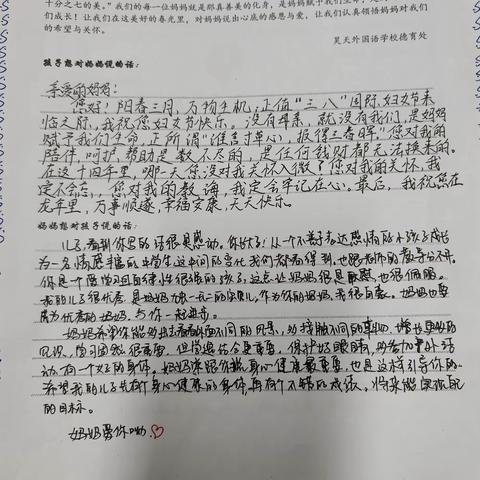 十分之七的美。”我们的每一位妈妈就是那真善美的化身，是妈妈赋予我们生命，是
们成长！让我们在这美好的春光里，对妈妈说出心底的感恩与爱，让我们认真领悟妈妈对我们
的希望与关怀。
昊天外国语学校德育处
孩子想对妈妈说的话：
亲爱的妈妈：
您好！阳春三月，万物生机，正值“三八”国际妇女节来
临之际，我祝您妇女节快乐。没有母亲，就没有我们，是妈妈
赋予我们生命，正所谓“谁言寸草心，报得三春晖。”您对我的
陪伴，呵护，帮助是数不尽的，是任何钱财都无法换来的。
在这十四年里，哪一天您没对我关怀入微了？您对我的关怀，我
定不会忘，您对我的教诲，我定会牢记在心。最后，我祝您在
龙年里，万事顺遂，幸福安康，天天快乐。
妈妈想对孩子说的话：
儿子，看到你写的话很是感动。你长大了！从一个不善于表达感情的小孩子成长
为一名情感丰富的中学生，这中间的变化我们都看得到，也跟老师的教导分不开。
你是一个爱学习且自律性很强的孩子，这点让妈妈很是欣慰，也很佩服。
我的儿子很优秀，是妈妈独一无二的宝贝儿，作为你的妈妈，我很自豪。妈妈也要
成为优秀的妈妈，与你一起进步。
妈妈希望你能多出去看看外面不同的风景，多接触不同的事物，增长更多的
见识。学习固然很重要，但劳逸结合更重要，保护好眼睛，多参加户外活
动，有一个好的身体。妈妈觉得你的身心健康最重要，也是这样引导你的。
希望我的儿子先有个身心健康的身体，再有个不错的成绩，将来能实现自己
的目标。
妈妈爱你呦